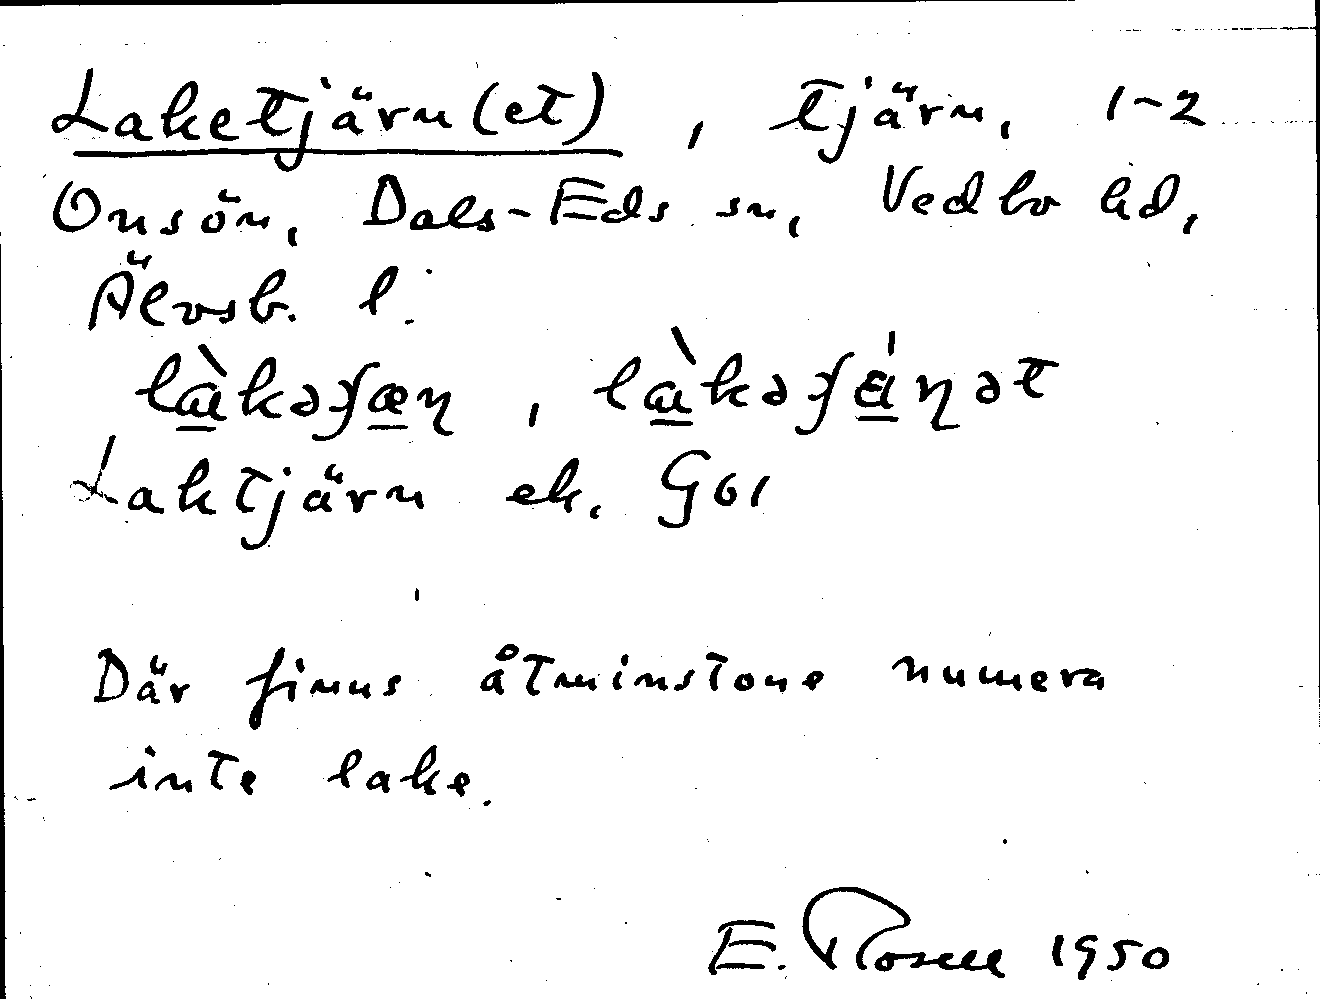 Laketjärn(et), tjärn, 1-2
Onsön, Dals-Eds sn, Vedbo hd,
Älvsb. l.
là̱kəʃæ̱ɳ, là̱kəʃǽ̱ɳət
Laktjärn ek. G61
Där finns åtminstone numera
inte lake.
E. Rosell 1950